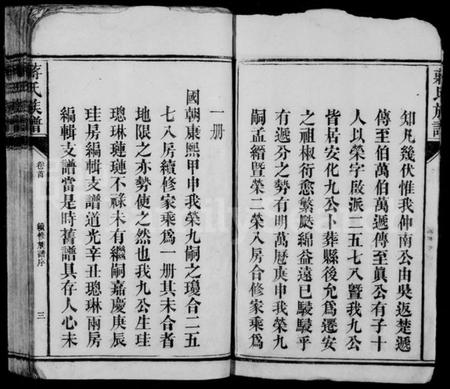 蔣氏族譜
知凡幾伏惟我仲南公由吳返楚遞
傳至伯萬伯萬遞傳至眞公有子十
人以榮字啟派二五七八暨我九公
皆居安化九公卜葬縣後允為遷安
之祖椒衍愈繁瓞綿益遠已駸駸乎
有遞分之勢有明萬曆庚申我榮九
嗣孟縉暨榮二榮八房合修家乘為
一册
國朝康熙甲申我榮九嗣之瓊合二五
七八房續修家乘為一册其未合者
地限之亦勢使之然也我九公生珪
璁琳璉璉不祿未有繼嗣嘉慶庚辰
珪房編輯支譜道光辛丑璁琳兩房
編輯支譜當是時舊譜具存人心未
蔣氏族譜
卷首
續修族譜序
三